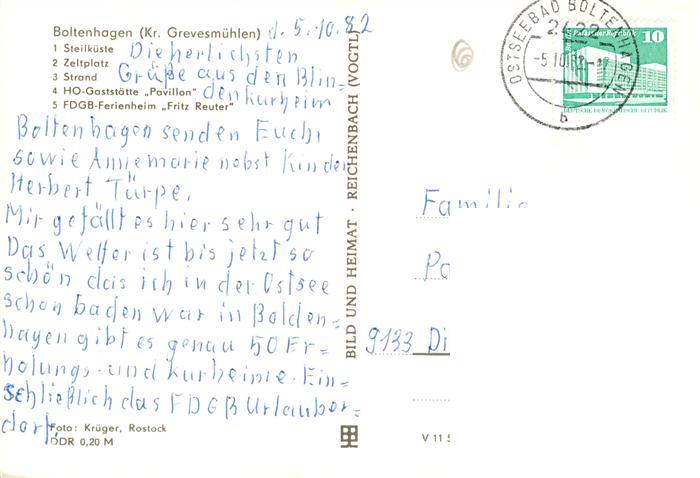 Boltenhagen (Kr. Grevesmühlen) d. 5.10.82
1 Steilküste
2 Zeltplatz
3 Strand
4 HO-Gaststätte „Pavillon"
5 FDGB-Ferienheim „Fritz Reuter"
Die herlichsten
Grüße aus den Blin=
denkurheim
Boltenhagen senden Euch
sowie Annemarie nobst Kinder
Herbert Türpe.
Mir gefällt es hier sehr gut
Das Wetter ist bis jetzt so
schön das ich in der Ostsee
schon baden war in Bolden=
hagen gibt es genau 50 Er=
holungs- und kurheime. Ein=
schließlich das FDGB Urlauber=
dorf.
Foto: Krüger, Rostock
DDR 0,20 M
BILD UND HEIMAT · REICHENBACH (VOGTL)
OSTSEEBAD BOLTENHAGEN
-5.10.82
b
10
Palast der Republik
DEUTSCHE DEMOKRATISCHE REPUBLIK
Familie
9133 Di
V 11 5